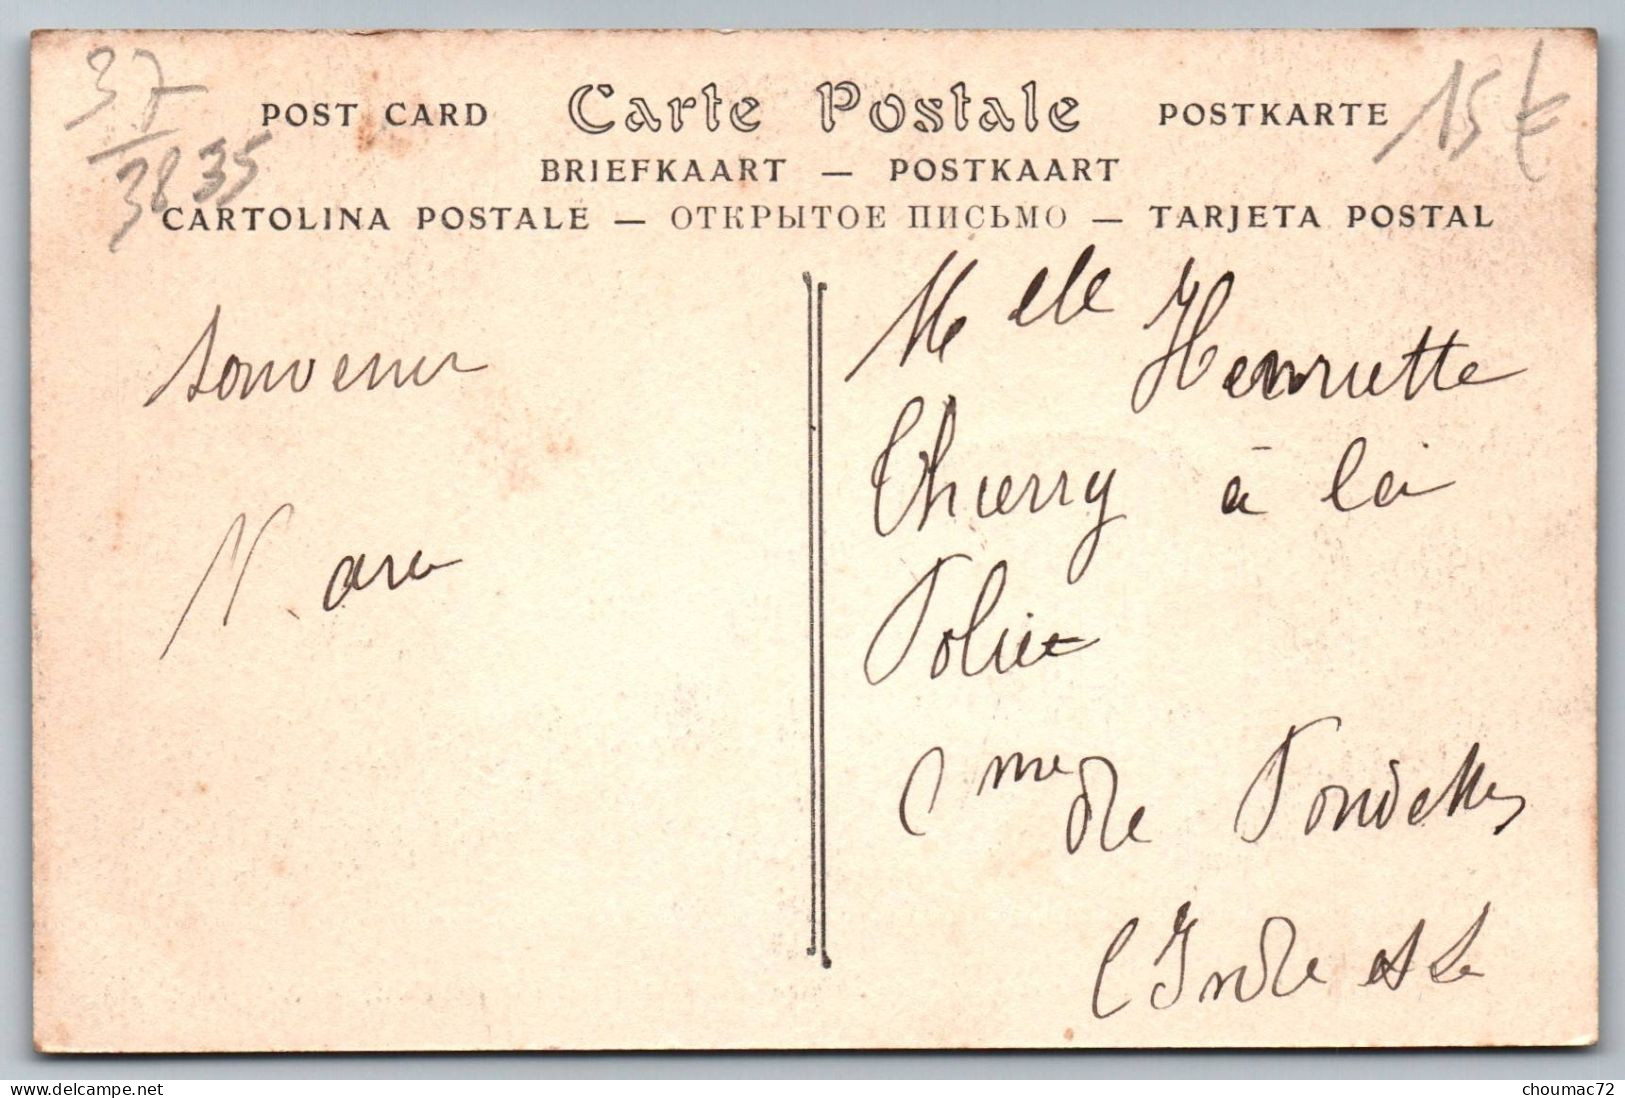 37
3835
15€
POST CARD Carte Postale POSTKARTE
BRIEFKAART — POSTKAART
CARTOLINA POSTALE — ОТКРЫТОЕ ПИСЬМО — TARJETA POSTAL
Souvenir
Melle Henriette
Thierry à la
Cne de Fondettes
Indre et L
www.delcampe.net
choumac72